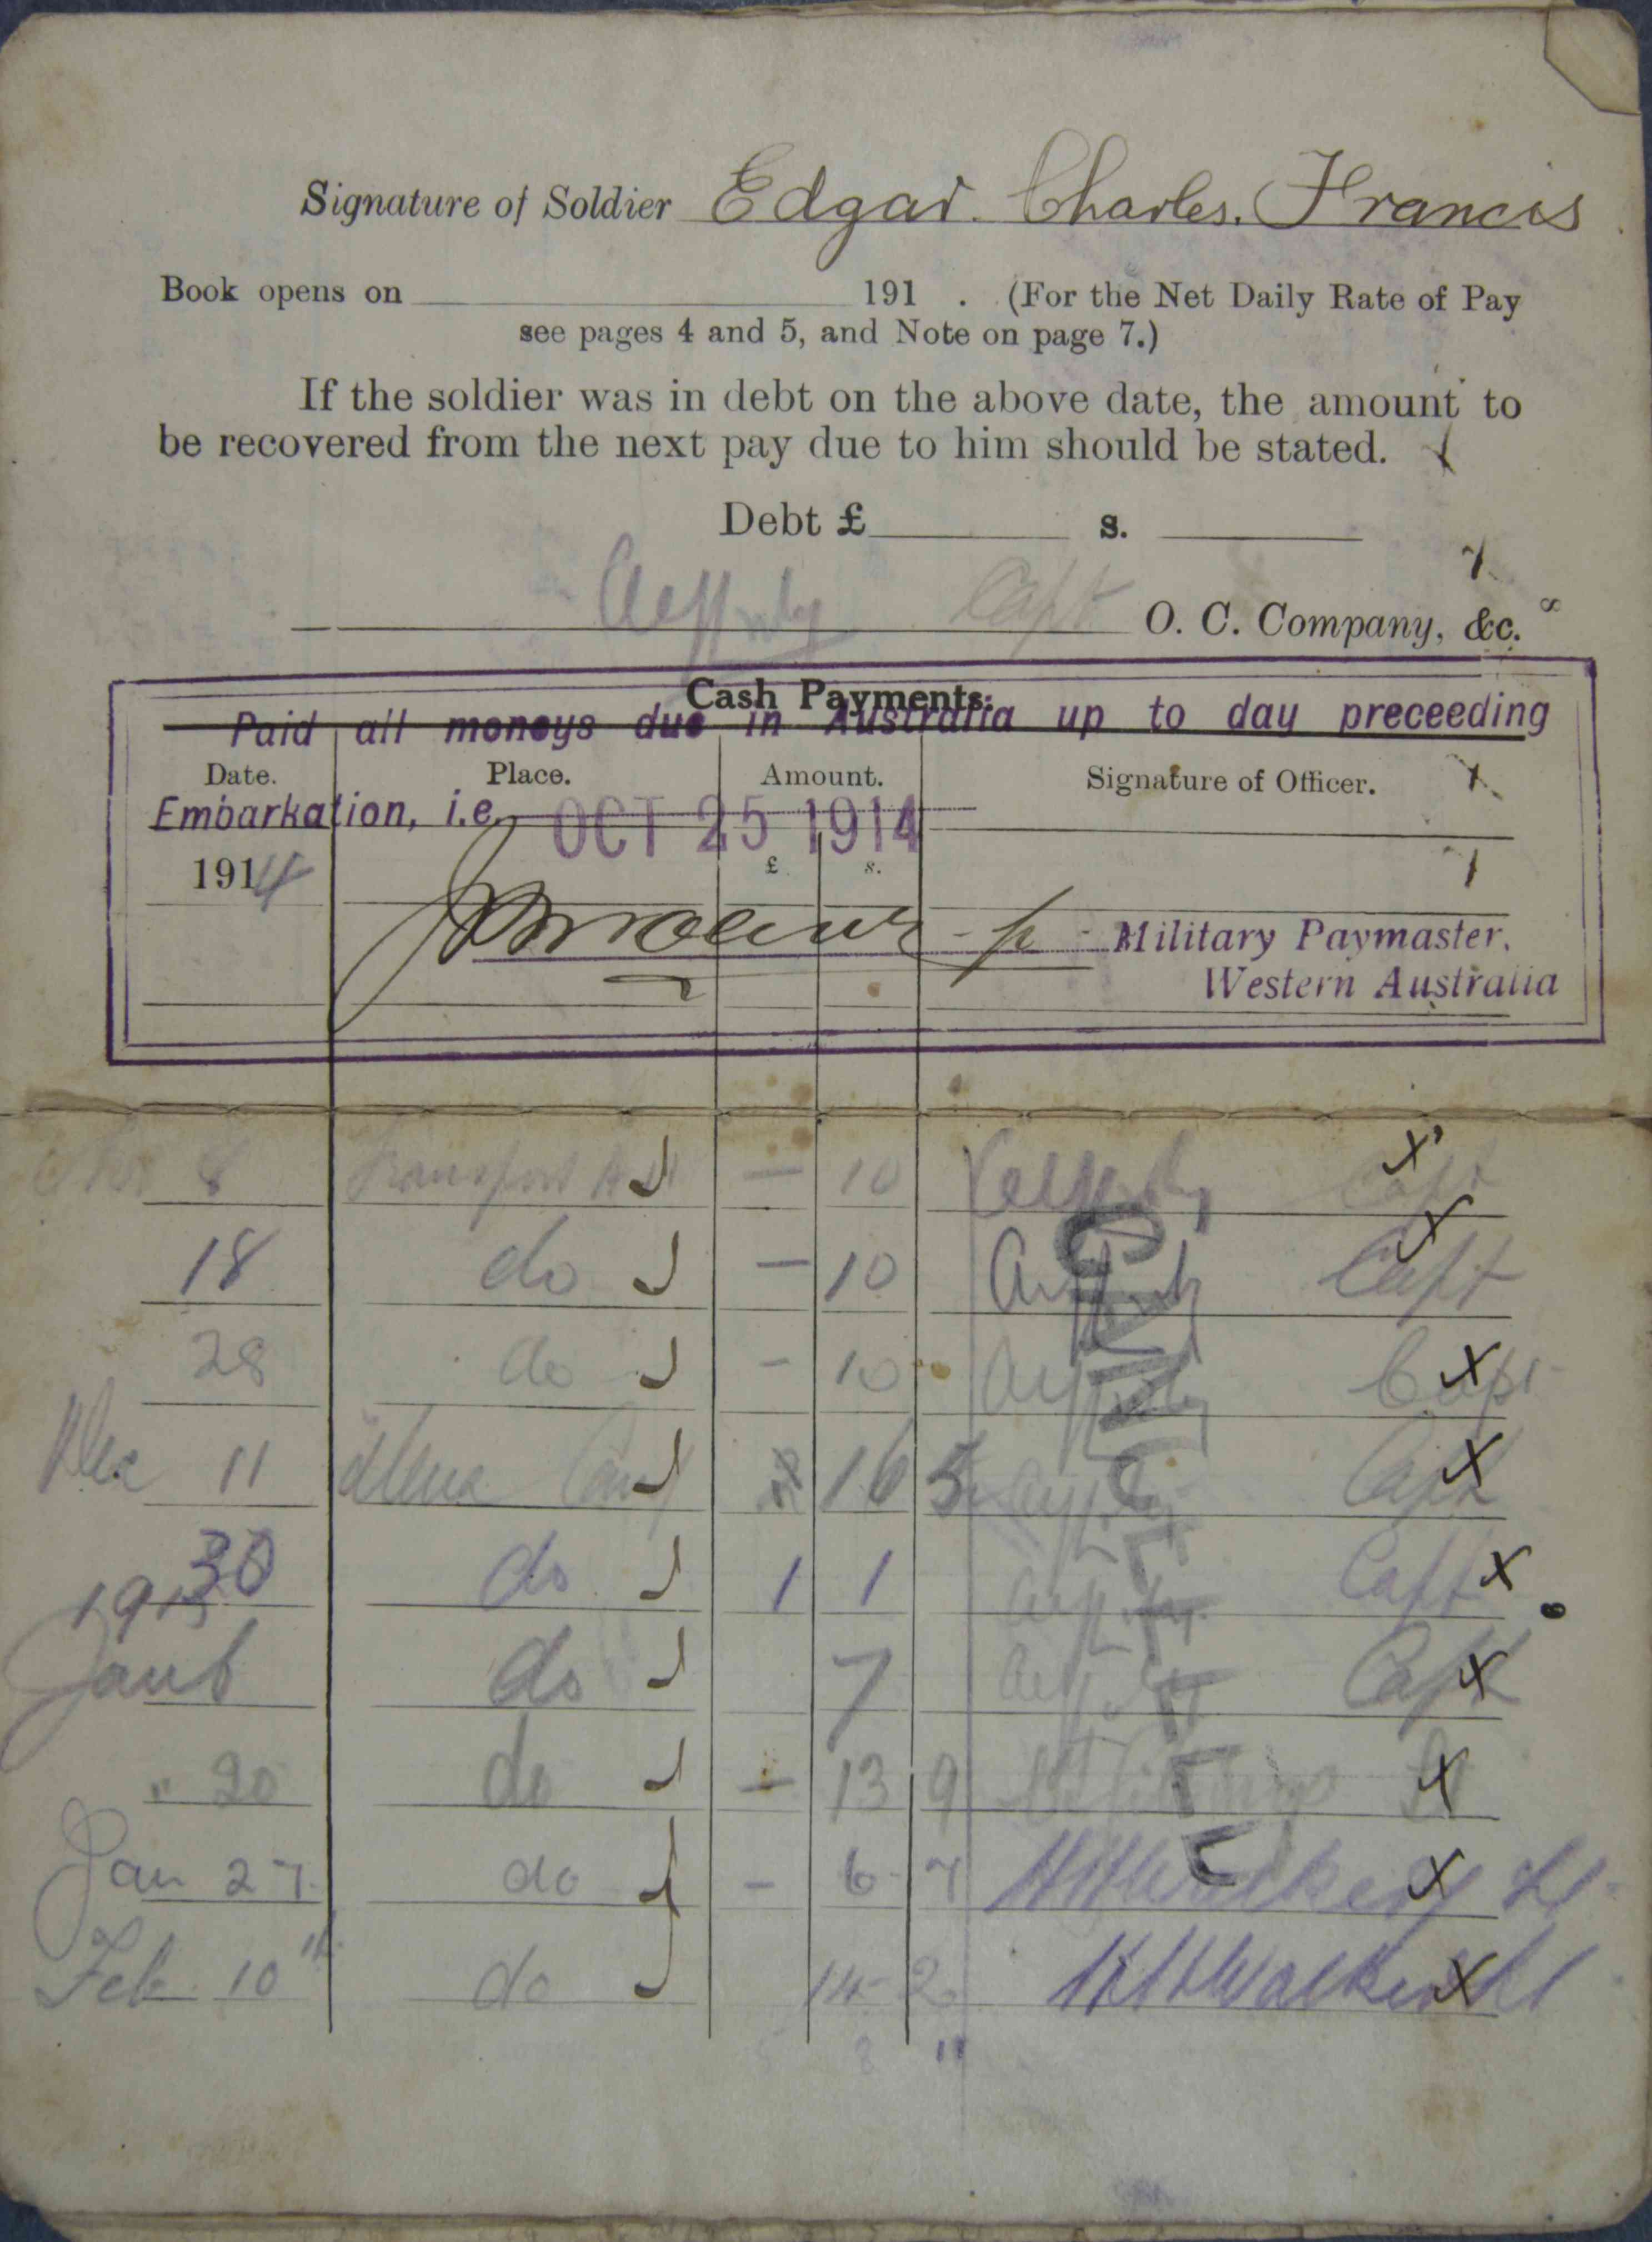 Signature of Soldier Edgar. Charles. Francis
Book opens on 191 . (For the Net Daily Rate of Pay
see pages 4 and 5, and Note on page 7.)
If the soldier was in debt on the above date, the amount to
be recovered from the next pay due to him should be stated.
Debt £ s.
Capt O. C. Company, &c.
Cash Payments.
Paid all moneys due in Australia up to day preceeding
Date. Place. Amount. Signature of Officer.
Embarkation, i.e. OCT 25 1914
1914 £ s.
Military Paymaster,
Western Australia
8 Transport — 10 Capt
18 do — 10 Capt
28 do - 10 Capt
Dec 11 Mena Camp 16 5 Capt
30 do 1 1 Capt
1915
Jan 6 do 7 Capt
" 20 do - 13 9
Jan 27 do - 6 7 Walker Lt
Feb 10th do 14 2 Walker Lt
5 8 11